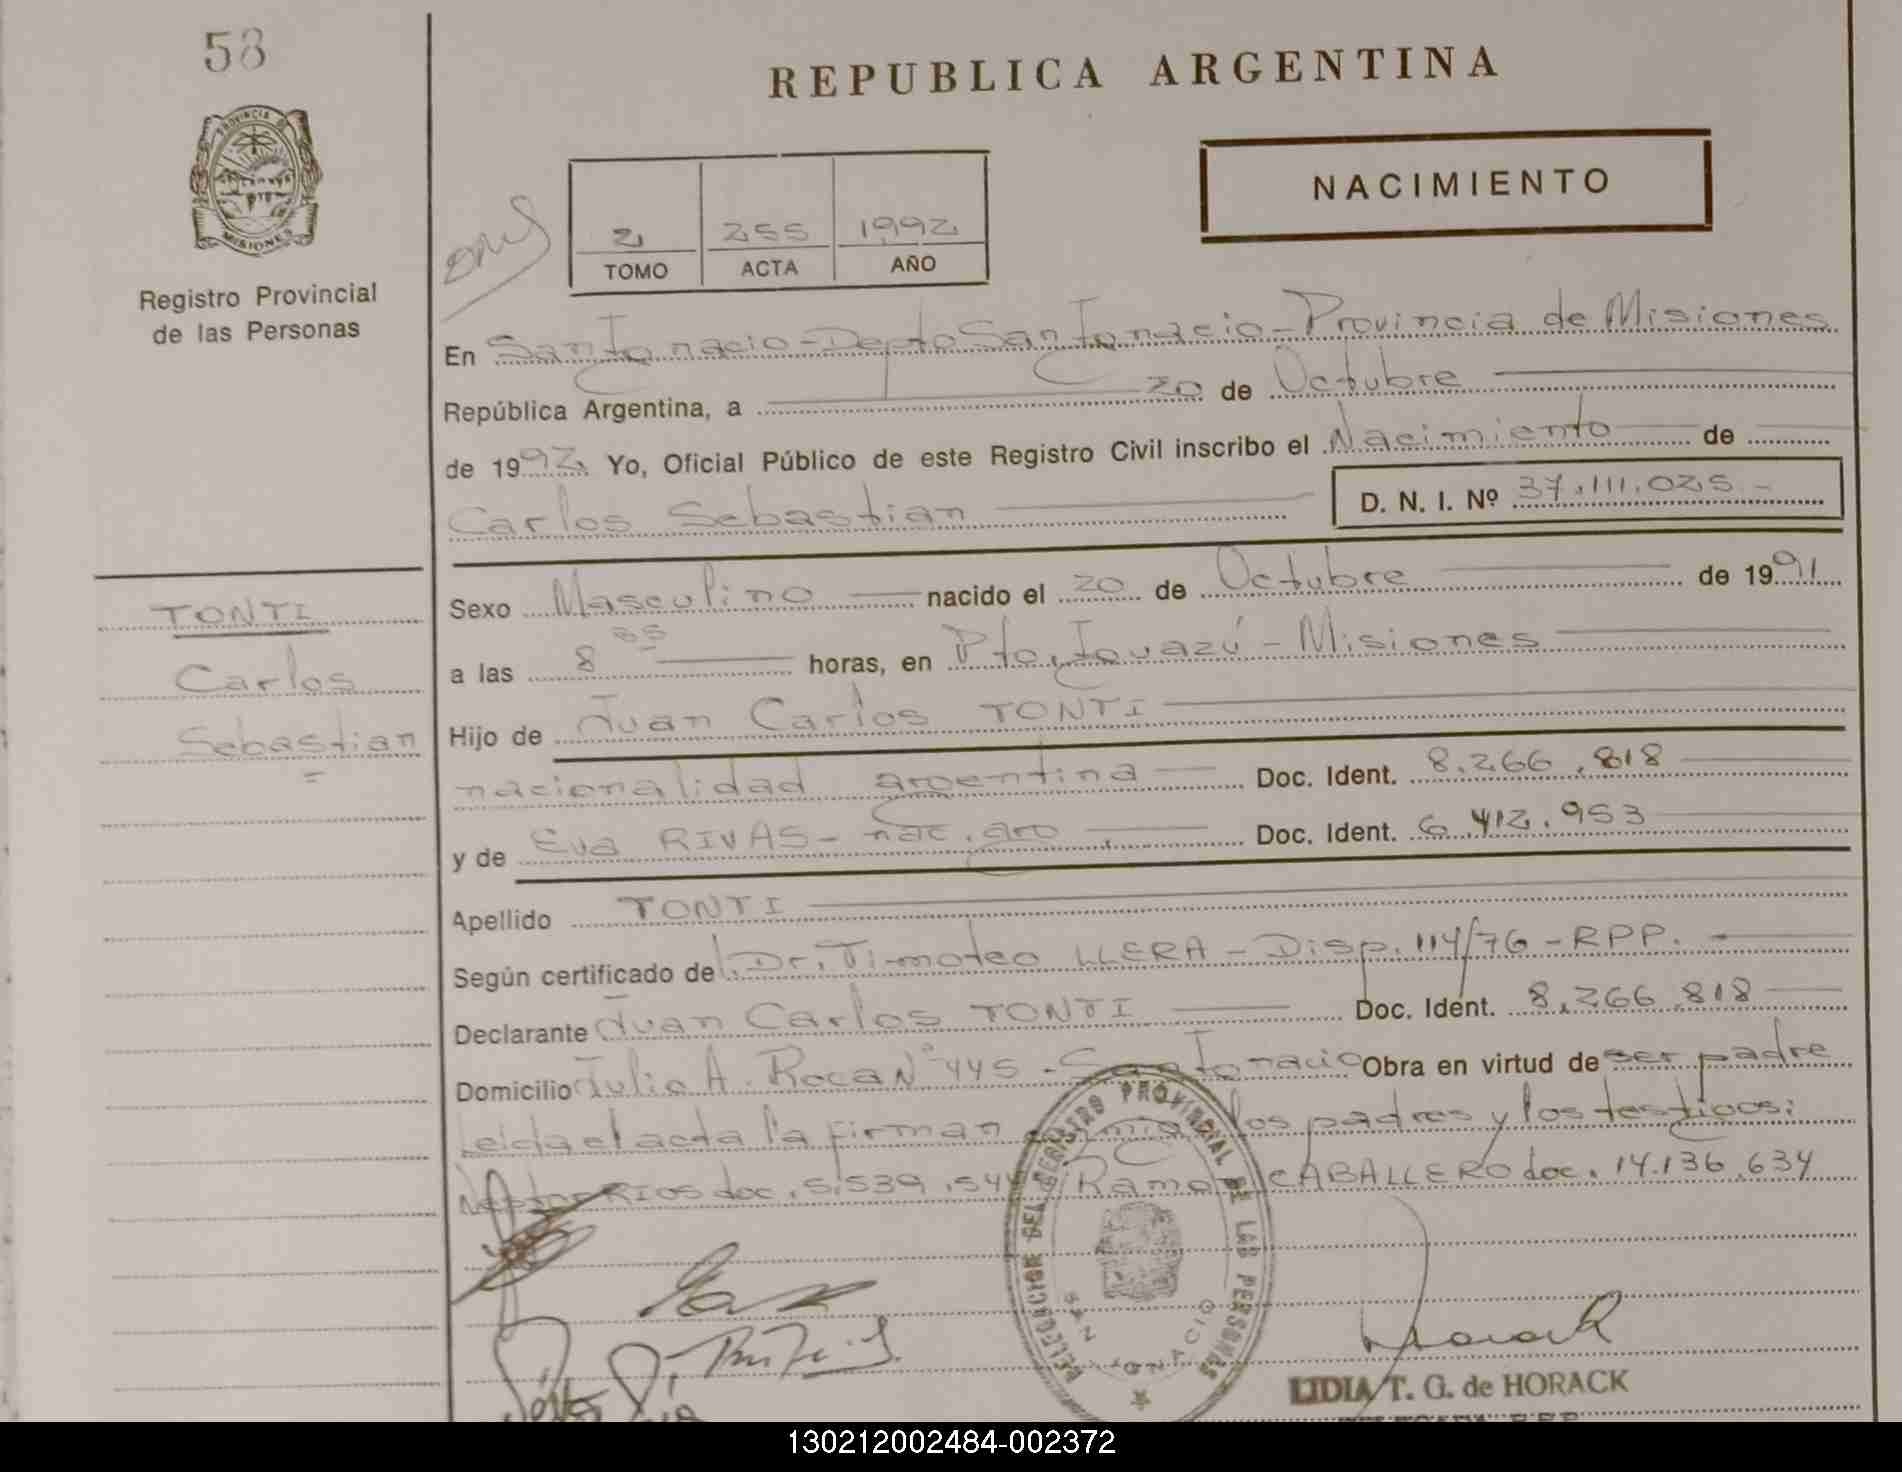 58
REPUBLICA ARGENTINA
PROVINCIA DE
MISIONES
NACIMIENTO
2 255 1992
TOMO ACTA AÑO
Registro Provincial
de las Personas
En San Ignacio - Depto San Ignacio - Provincia de Misiones
República Argentina, a 20 de Octubre
de 1992 Yo, Oficial Público de este Registro Civil inscribo el Nacimiento de
Carlos Sebastian D. N. I. Nº 37.111.025.-
TONTI
Carlos
Sebastian
Sexo Masculino nacido el 20 de Octubre de 1991
a las 8 55 horas, en Pto. Iguazú - Misiones
Hijo de Juan Carlos TONTI
nacionalidad argentina Doc. Ident. 8.266.818
y de Eva RIVAS - nac. arg. Doc. Ident. 6.412.953
Apellido TONTI
Según certificado de Dr. Timoteo LLERA - Disp. 114/76 - RPP.
Declarante Juan Carlos TONTI Doc. Ident. 8.266.818
Domicilio Julio A. Roca Nº 445 - San Ignacio Obra en virtud de ser padre
Leida el acta la firman los padres y los testigos:
Nestor RIOS doc. 5.539.544 Ramon CABALLERO doc. 14.136.634
DEL REGISTRO PROVINCIAL DE LAS PERSONAS
SAN IGNACIO
LIDIA T. G. de HORACK
130212002484-002372